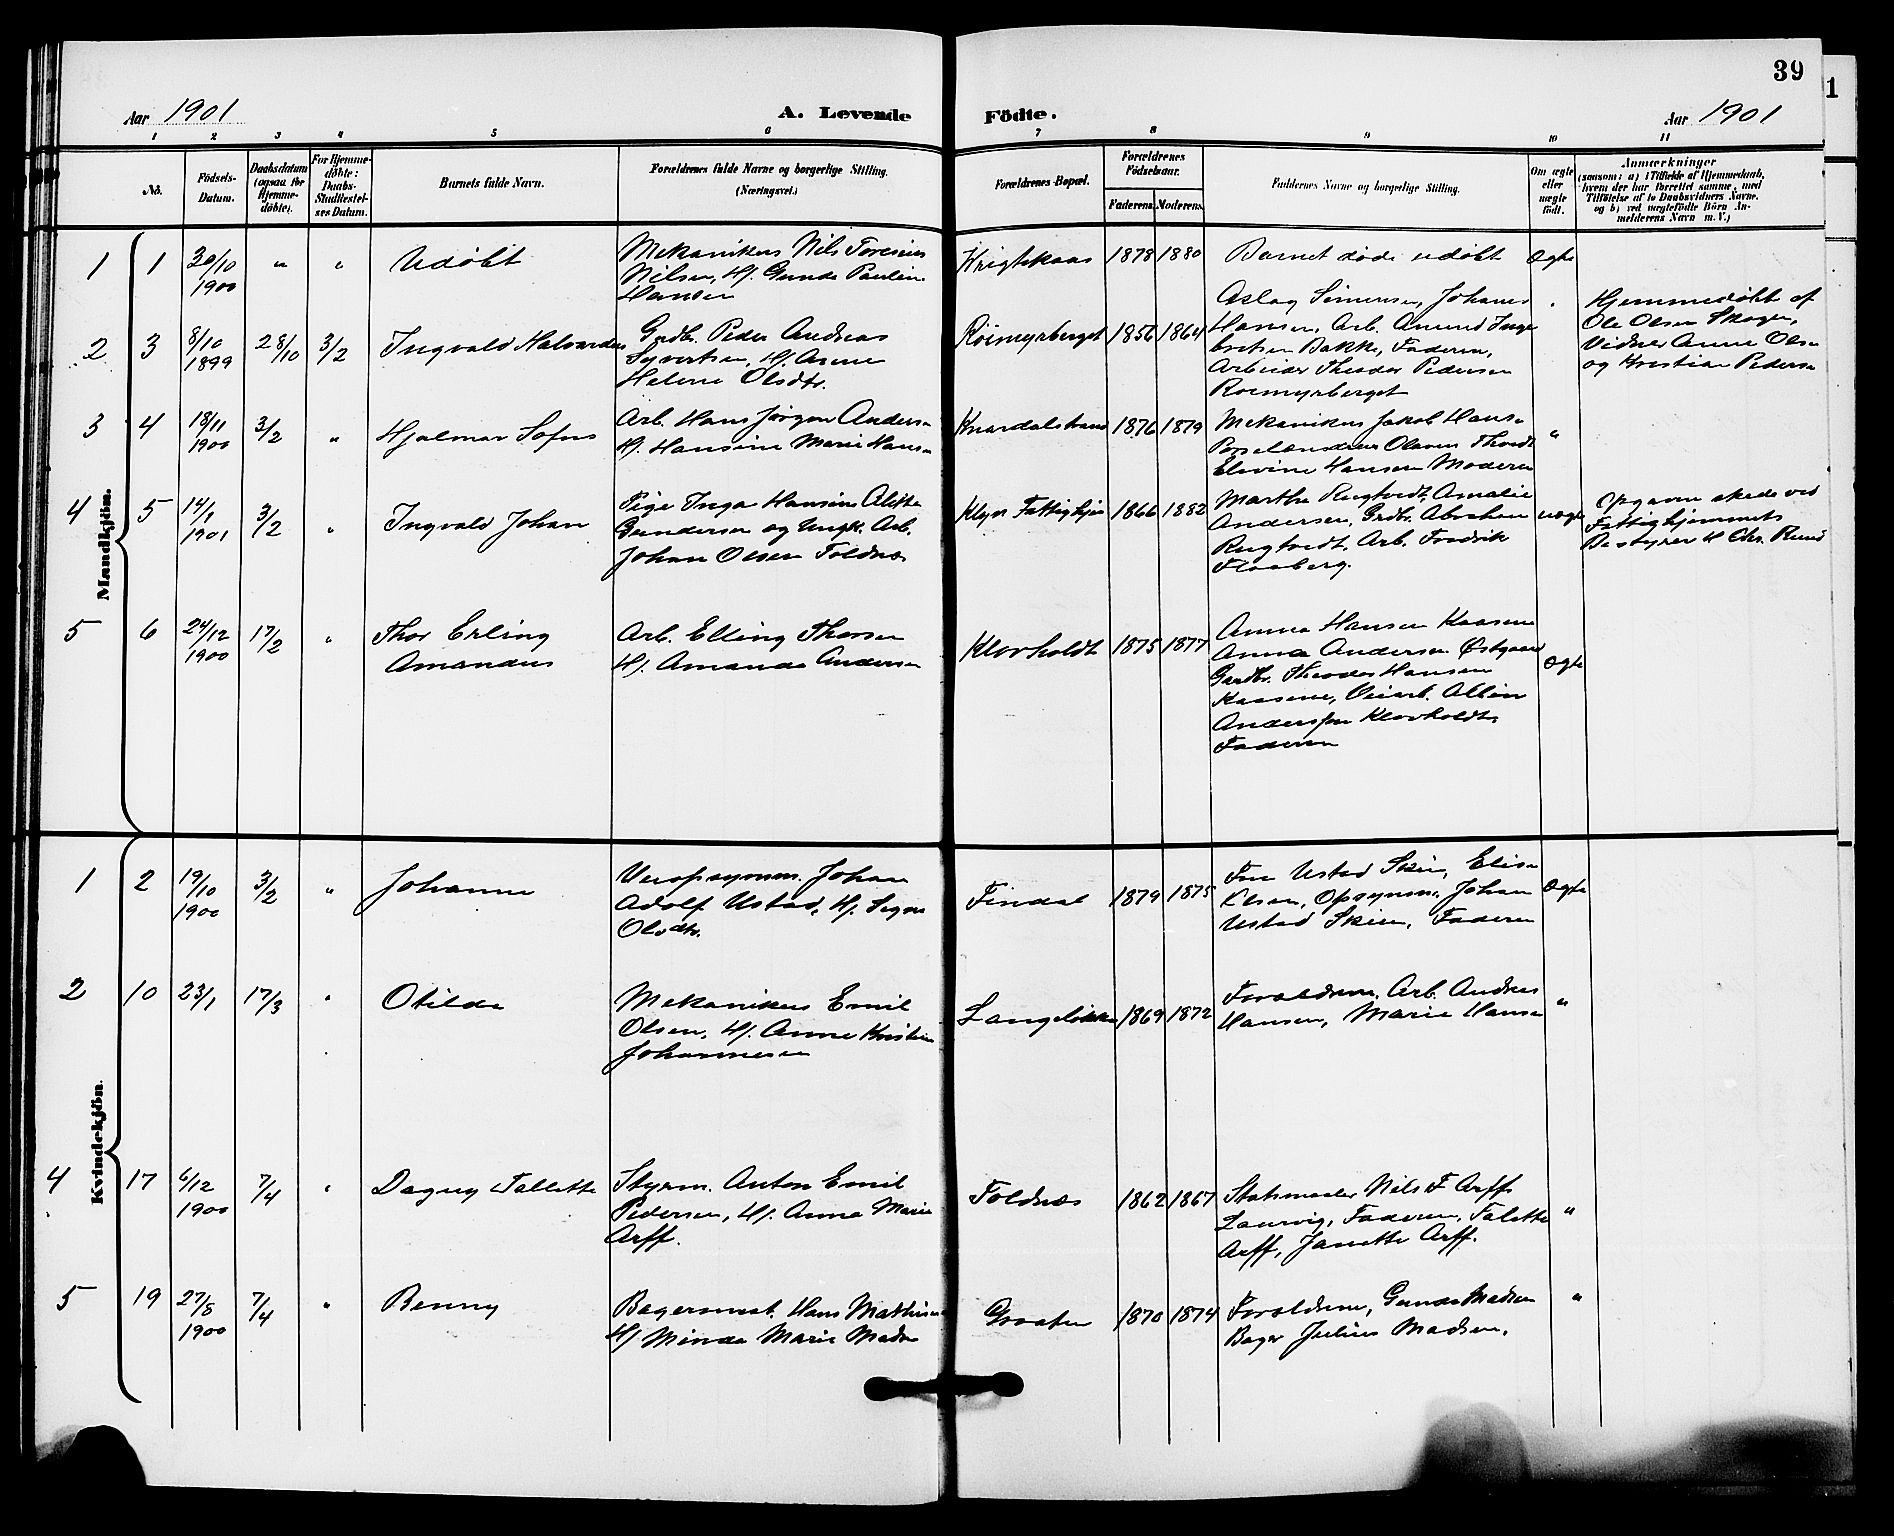 39
1
Aar 1901
A. Levende
Födte.
Aar 1901
1 2 3 4 5 6 7 8 9 10 11
No.
Födsels-
Datum.
Daabsdatum
(ogsaa for
Hjemme-
døbte).
For Hjemme-
døbte:
Daabs-
Stadfæstel-
ses Datum.
Barnets fulde Navn.
Forældrenes fulde Navne og borgerlige Stilling.
(Næringsvei.)
Forældrenes Bopæl.
Forældrenes
Födselsaar.
Faderens. Moderens.
Faddernes Navne og borgerlige Stilling.
Om ægte
eller
uægte
født.
Anmærkninger
(saasom: a) i Tilfælde af Hjemmedaab,
hvem der har forrettet samme, med
Tilføielse af to Daabsvidners Navne.
og b) ved uægtefødte Börn An-
melderens Navn m. V.)
Mandkjön.
1 1 30/10 1900 " " Udöbt
Mekanikus Nils
Nilsen, H/ Gunda Pauline
Hansen
1878 1880
Barnet döde udöbt
Ægte
2 3 8/10 1899 28/10 3/2 Ingvald Halvardus
Grdbr. Peder Andreas
Syvertsen, H/
Helene Olsdtr.
Röimyrberget 1856 1864
Aslag Simonsen, Johanes
Hansen, Arb. Amund Inge
bretsen Bakke, Faderen,
Arbeider Theodor Pedersen
Roimyrberget
Hjemmedöbt af
Ole Olsen Skogen,
Vidner Anne Olsen
og Kristian Pedersen
3 4 18/11 1900 3/2 " Hjalmar Sofus
Arb. Hans Jörgen Andersen
H/ Hansine Marie Hansen
Knardalstrand 1876 1879
Mekanikus Jakob Hansen
Olavus
Elevine Hansen Moderen
"
4 5 14/1 1901 3/2 " Ingvald Johan
Pige Inga Hansine Alette
Gundersen og Ungk. Arb.
Johan Olsen Foldnes
Klyve Fattighjem 1866 1882
Marthe Rugtvedt, Amalie
Andersen, Grdbr. Abraham
Rugtvedt, Arb. Fredrik
Flaaberg.
uægte
Opgaven skede ved
Fattighjemmets
Bestyrer H Chr. Rund
5 6 24/12 1900 17/2 " Thor Erling
Amandus
Arb. Elling Thorsen
H/ Amanda Andersen
Klovholdt 1875 1877
Anna Hansen Kaasene
Anna Andersen Östgaard
Gaardbr. Theodor Hansen
Kaasene, Veiarb. Albin
Andersen Klovholdt,
Faderen
Ægte
Kvindekjön.
1 2 19/10 1900 3/2 " Johanne
Veiopsynsm. Johan
Adolf Ustad, H/ Signe
Olsdtr.
Findal 1879 1875
Fru Ustad Skien, Elise
Olsen, Opsynsm. Johan
Ustad Skien, Faderen
Ægte
2 10 23/1 17/3 " Otilda
Mekanikus Emil
Olsen, H/ Anne Kristine
Johannesen
1869 1872
Forældrene, Arb. Andreas
Hansen, Marie Hansen
"
4 17 6/12 1900 7/4 " Dagny Tallette
Styrm. Anton Emil
Pedersen, H/ Anna Marie
Arff.
Foldnæs 1862 1867
Nils F Arff
Laurvig, Faderen, Talette
Arff, Janette Arff.
"
5 19 27/8 1900 7/4 " Benny
Bagermest. Hans Mathisen
H/ Minda Marie Madsen
Graaten 1870 1874
Forældrene, Gunda Madsen
Bager Julius Madsen.
"